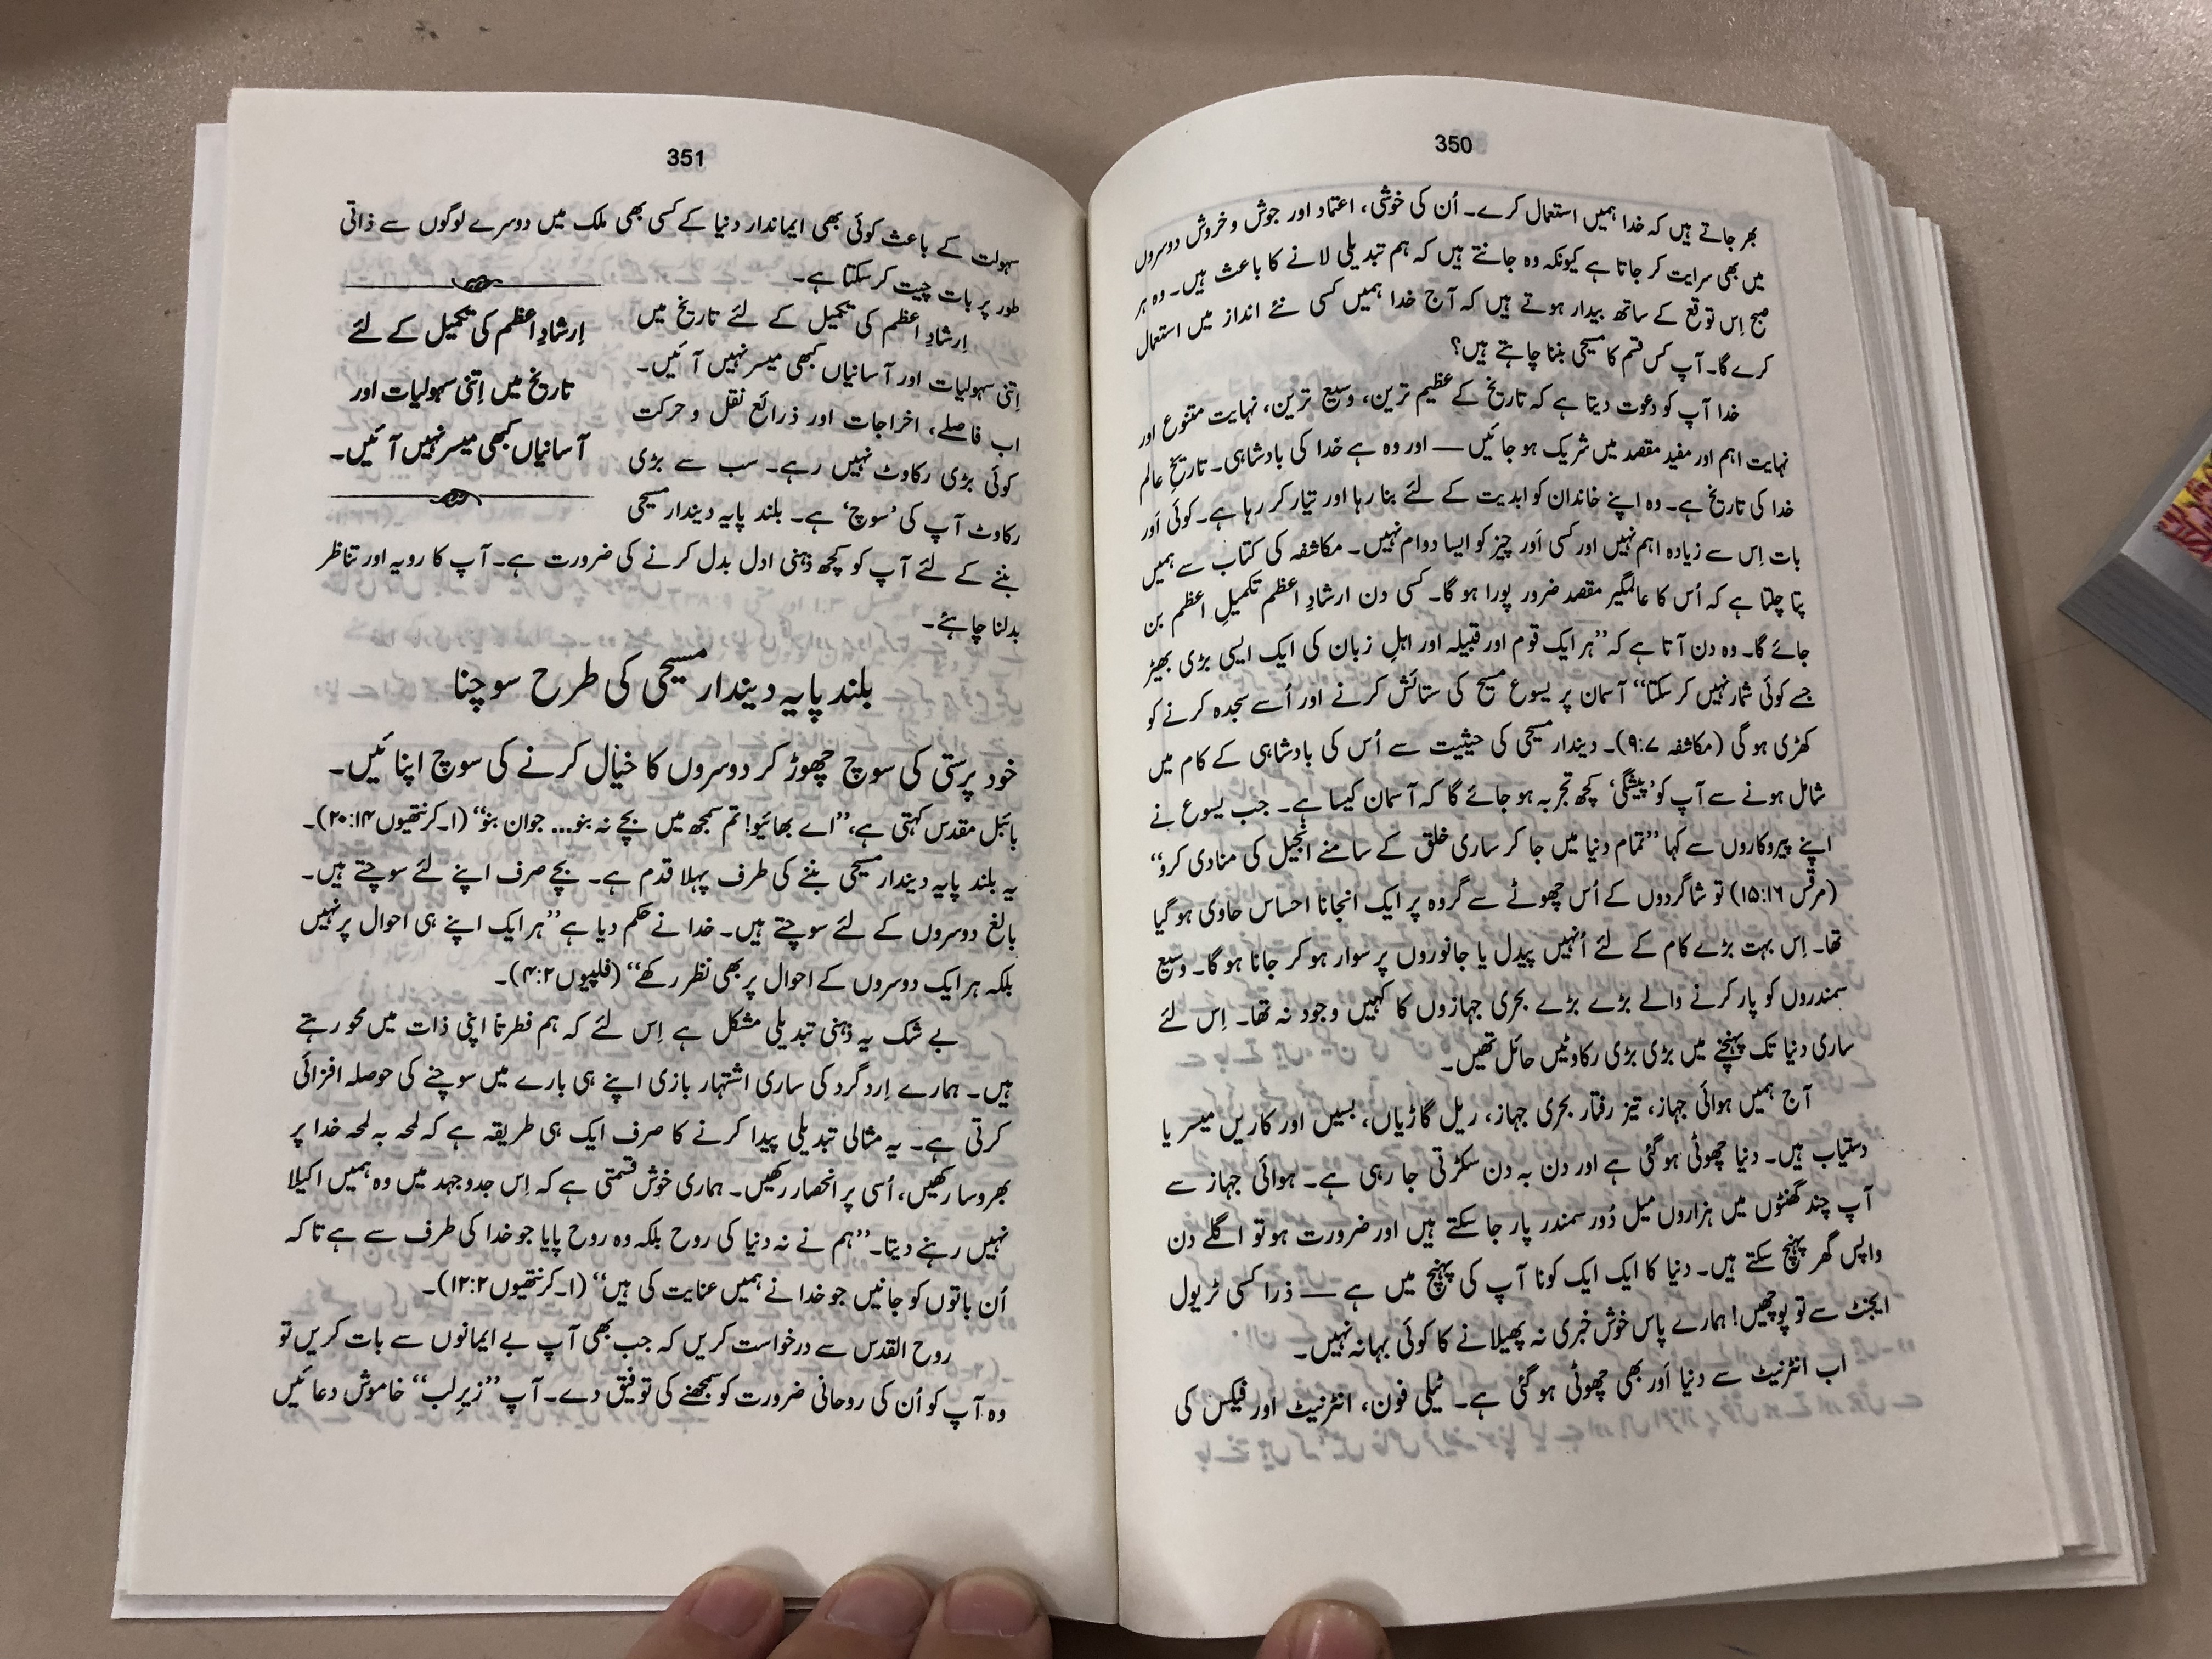 350
بھر جاتے ہیں کہ خدا ہمیں استعمال کرے۔ اُن کی خوشی، اعتماد اور جوش و خروش دوسروں
میں بھی سرایت کر جاتا ہے کیونکہ وہ جانتے ہیں کہ ہم تبدیلی لانے کا باعث ہیں۔ وہ ہر
صبح اِس توقع کے ساتھ بیدار ہوتے ہیں کہ آج خدا ہمیں کسی نئے انداز میں استعمال
کرے گا۔ آپ کس قسم کا مسیحی بننا چاہتے ہیں؟
خدا آپ کو دعوت دیتا ہے کہ تاریخ کے عظیم ترین، وسیع ترین، نہایت متنوع اور
نہایت اہم اور مفید مقصد میں شریک ہو جائیں — اور وہ ہے خدا کی بادشاہی۔ تاریخِ عالم
خدا کی تاریخ ہے۔ وہ اپنے خاندان کو ابدیت کے لئے بنا رہا اور تیار کر رہا ہے۔ کوئی اَور
بات اِس سے زیادہ اہم نہیں اور کسی اَور چیز کو ایسا دوام نہیں۔ مکاشفہ کی کتاب سے ہمیں
پتا چلتا ہے کہ اُس کا عالمگیر مقصد ضرور پورا ہو گا۔ کسی دن ارشادِ اعظم تکمیلِ اعظم بن
جائے گا۔ وہ دن آتا ہے کہ ”ہر ایک قوم اور قبیلہ اور اہلِ زبان کی ایک ایسی بڑی بھیڑ
جسے کوئی شمار نہیں کر سکتا“ آسمان پر یسوع مسیح کی ستائش کرنے اور اُسے سجدہ کرنے کو
کھڑی ہو گی (مکاشفہ ۷:۹)۔ دیندار مسیحی کی حیثیت سے اُس کی بادشاہی کے کام میں
شامل ہونے سے آپ کو ’پیشگی‘ کچھ تجربہ ہو جائے گا کہ آسمان کیسا ہے۔ جب یسوع نے
اپنے پیروکاروں سے کہا ”تمام دنیا میں جا کر ساری خلق کے سامنے انجیل کی منادی کرو“
(مرقس ۱۶:۱۵) تو شاگردوں کے اُس چھوٹے سے گروہ پر ایک انجانا احساس حاوی ہو گیا
تھا۔ اِس بہت بڑے کام کے لئے اُنہیں پیدل یا جانوروں پر سوار ہو کر جانا ہو گا۔ وسیع
سمندروں کو پار کرنے والے بڑے بڑے بحری جہازوں کا کہیں وجود نہ تھا۔ اِس لئے
ساری دنیا تک پہنچنے میں بڑی بڑی رکاوٹیں حائل تھیں۔
آج ہمیں ہوائی جہاز، تیز رفتار بحری جہاز، ریل گاڑیاں، بسیں اور کاریں میسر یا
دستیاب ہیں۔ دنیا چھوٹی ہو گئی ہے اور دن بہ دن سکڑتی جا رہی ہے۔ ہوائی جہاز سے
آپ چند گھنٹوں میں ہزاروں میل دُور سمندر پار جا سکتے ہیں اور ضرورت ہو تو اگلے دن
واپس گھر پہنچ سکتے ہیں۔ دنیا کا ایک ایک کونا آپ کی پہنچ میں ہے — ذرا کسی ٹریول
ایجنٹ سے تو پوچھیں! ہمارے پاس خوش خبری نہ پھیلانے کا کوئی بہانہ نہیں۔
اب انٹرنیٹ سے دنیا اَور بھی چھوٹی ہو گئی ہے۔ ٹیلی فون، انٹرنیٹ اور فیکس کی
351
سہولت کے باعث کوئی بھی ایماندار دنیا کے کسی بھی ملک میں دوسرے لوگوں سے ذاتی
طور پر بات چیت کر سکتا ہے۔
اِرشادِ اعظم کی تکمیل کے لئے تاریخ میں
اِتنی سہولیات اور آسانیاں کبھی میسر نہیں آئیں۔
اب فاصلے، اخراجات اور ذرائع نقل و حرکت
کوئی بڑی رکاوٹ نہیں رہے۔ سب سے بڑی
رکاوٹ آپ کی ’سوچ‘ ہے۔ بلند پایہ دیندار مسیحی
اِرشادِ اعظم کی تکمیل کے لئے
تاریخ میں اِتنی سہولیات اور
آسانیاں کبھی میسر نہیں آئیں۔
بننے کے لئے آپ کو کچھ ذہنی ادل بدل کرنے کی ضرورت ہے۔ آپ کا رویہ اور تناظر
بدلنا چاہئے۔
بلند پایہ دیندار مسیحی کی طرح سوچنا
خود پرستی کی سوچ چھوڑ کر دوسروں کا خیال کرنے کی سوچ اپنائیں۔
بائبل مقدس کہتی ہے، ”اے بھائیو! تم سمجھ میں بچے نہ بنو... جوان بنو“ (۱۔کرنتھیوں ۱۴:۲۰)۔
یہ بلند پایہ دیندار مسیحی بننے کی طرف پہلا قدم ہے۔ بچے صرف اپنے لئے سوچتے ہیں۔
بالغ دوسروں کے لئے سوچتے ہیں۔ خدا نے حکم دیا ہے ”ہر ایک اپنے ہی احوال پر نہیں
بلکہ ہر ایک دوسروں کے احوال پر بھی نظر رکھے“ (فلپیوں ۲:۴)۔
بے شک یہ ذہنی تبدیلی مشکل ہے اِس لئے کہ ہم فطرتاً اپنی ذات میں محو رہتے
ہیں۔ ہمارے اِرد گرد کی ساری اشتہار بازی اپنے ہی بارے میں سوچنے کی حوصلہ افزائی
کرتی ہے۔ یہ مثالی تبدیلی پیدا کرنے کا صرف ایک ہی طریقہ ہے کہ لمحہ بہ لمحہ خدا پر
بھروسا رکھیں، اُسی پر انحصار رکھیں۔ ہماری خوش قسمتی ہے کہ اِس جدوجہد میں وہ ہمیں اکیلا
نہیں رہنے دیتا۔ ”ہم نے نہ دنیا کی روح بلکہ وہ روح پایا جو خدا کی طرف سے ہے تاکہ
اُن باتوں کو جانیں جو خدا نے ہمیں عنایت کی ہیں“ (۱۔کرنتھیوں ۲:۱۲)۔
روح القدس سے درخواست کریں کہ جب بھی آپ بے ایمانوں سے بات کریں تو
وہ آپ کو اُن کی روحانی ضرورت کو سمجھنے کی توفیق دے۔ آپ ”زیرِ لب“ خاموش دعائیں